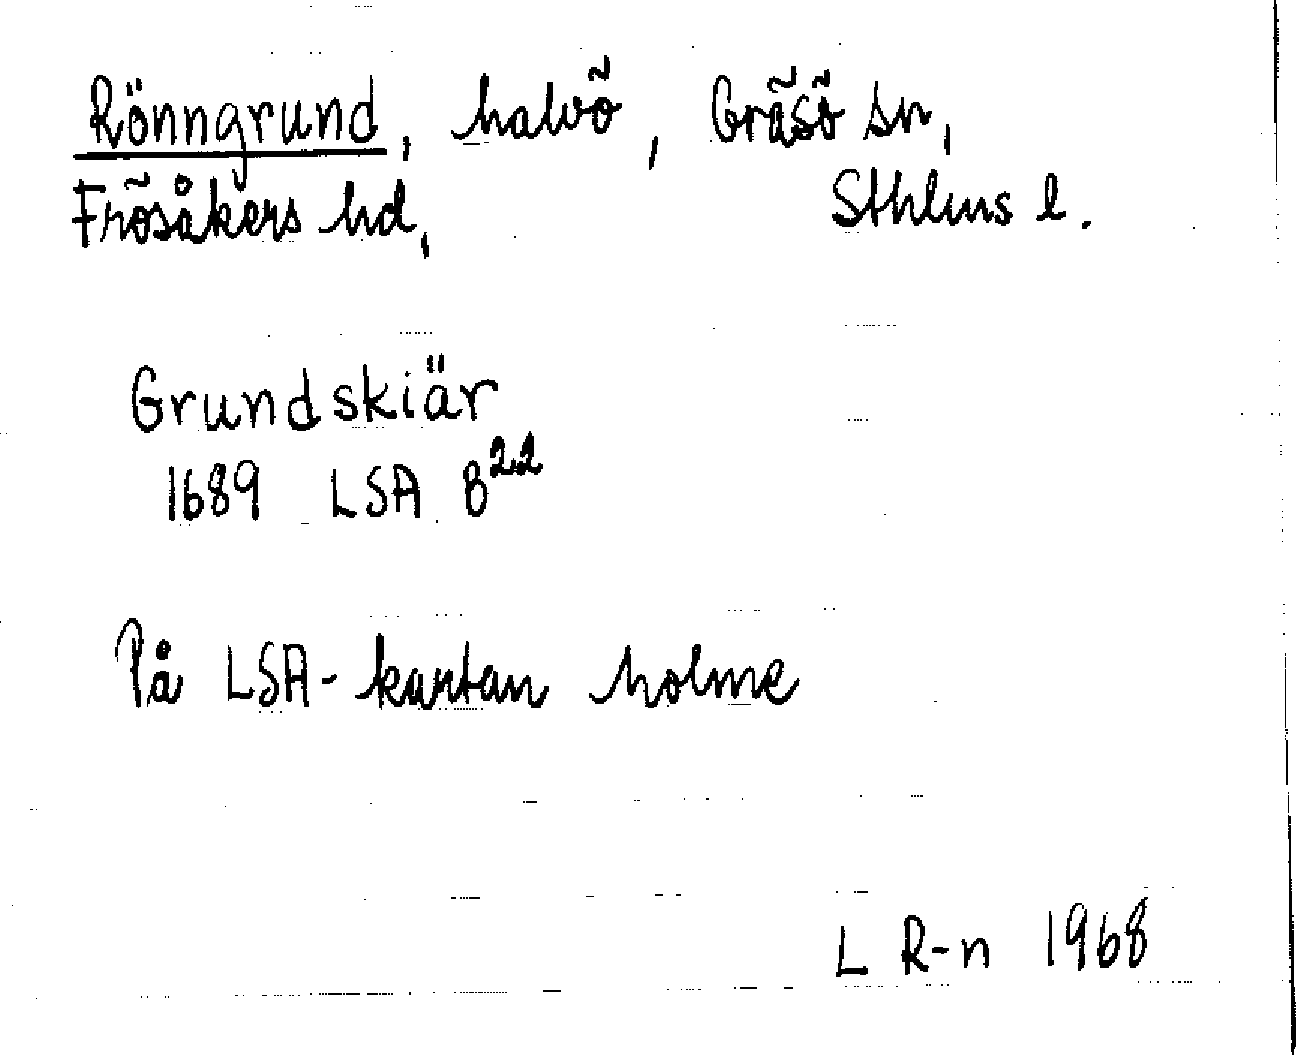 Rönngrund, halvö, Gräsö sn,
Frösåkers hd, Sthlms l.
Grundskiär
1689 LSA B²²
På LSA-kartan holme
L R-n 1968